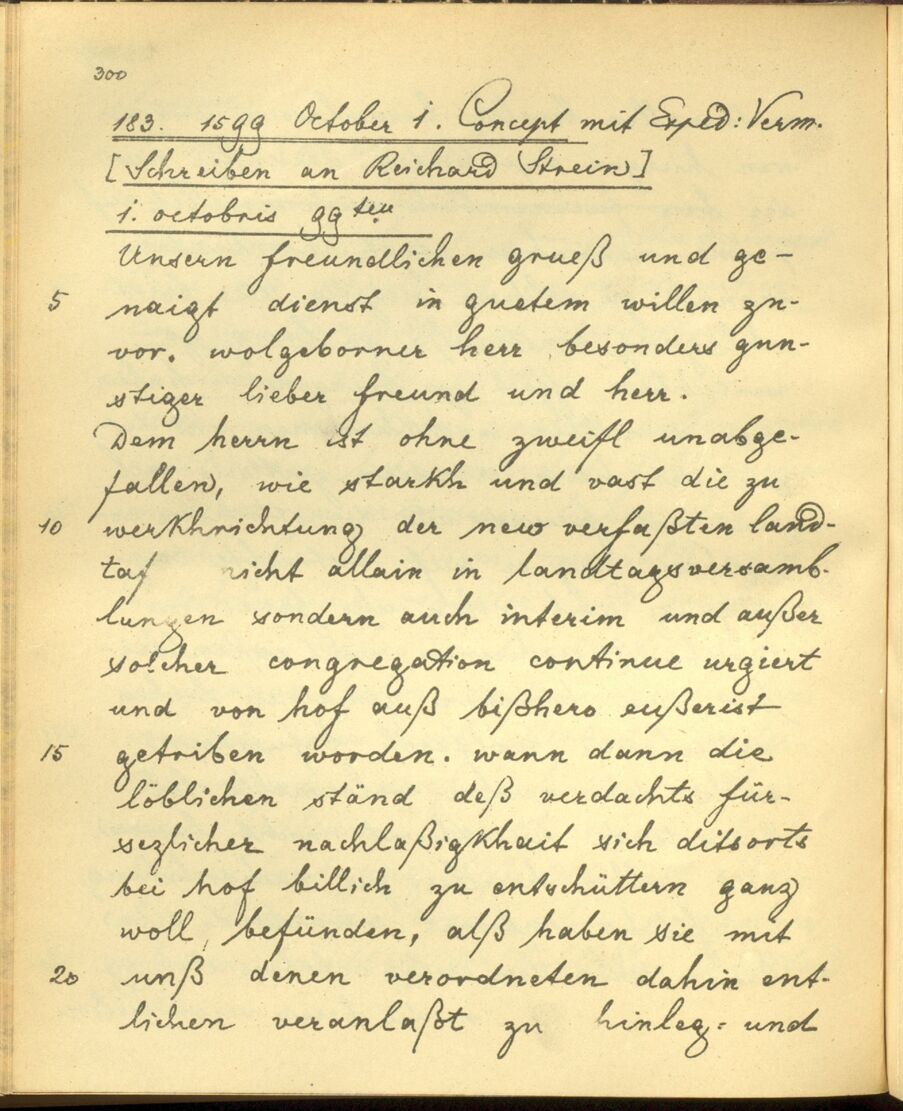 300
183. 1599 October 1. Concept mit Exped: Verm.
[Schreiben an Reichard Strein]
1. octobris 99ten
Unsern freundlichen grueß und ge-
5 naigt dienst in guetem willen zu-
vor. wolgeborner herr besonders gun-
stiger lieber freund und herr.
Dem herrn ist ohne zweifl unabge-
fallen, wie starkh und vast die zu
10 werkhrichtung der new verfaßten land-
taf nicht allain in landtagsversamb-
lungen sondern auch interim und außer
solcher congregation continue urgiert
und von hof auß bißhero eußerist
15 getriben worden. wann dann die
löblichen ständ deß verdachts für-
sezlicher nachlaßigkhait sich ditsorts
bei hof billich zu entschüttern ganz
woll befünden, alß haben sie mit
20 unß denen verordneten dahin ent-
lichen veranlaßt zu hinleg- und